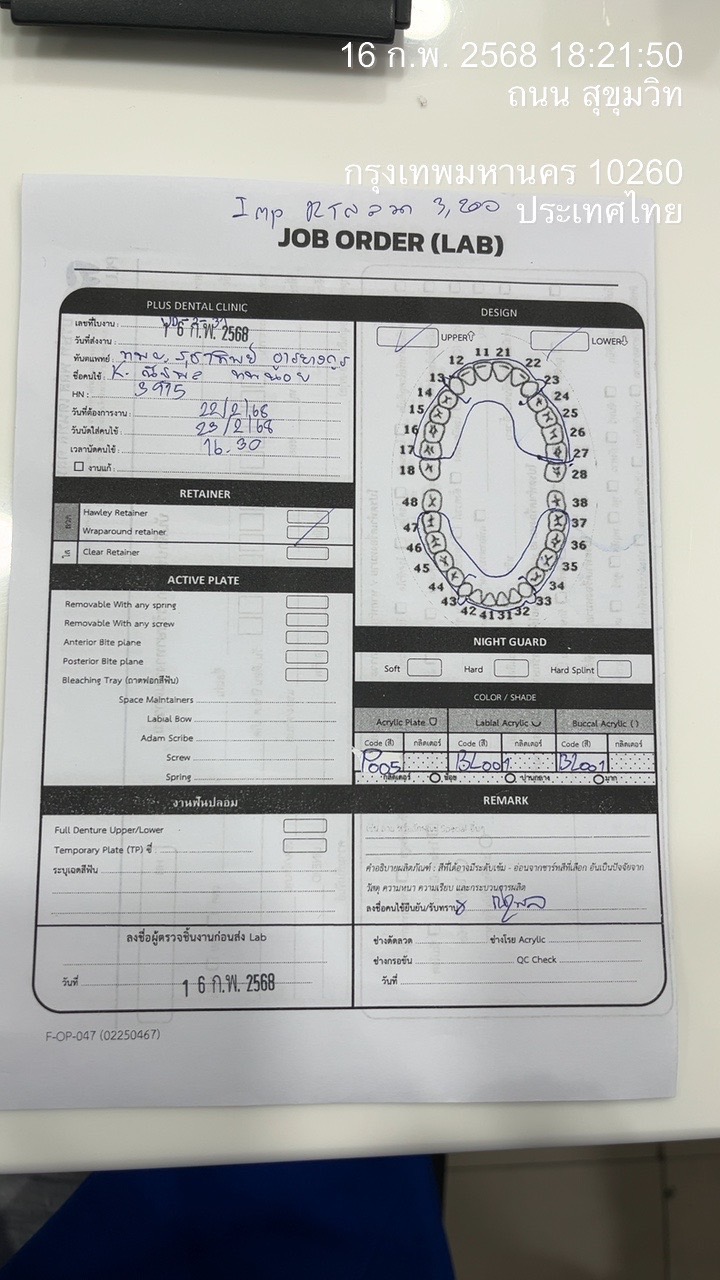 16 ก.พ. 2568 18:21:50
ถนน สุขุมวิท
กรุงเทพมหานคร 10260
ประเทศไทย
Imp ลวด 3,200
JOB ORDER (LAB)
PLUS DENTAL CLINIC
เลขที่ใบงาน :
วันที่ส่งงาน : 16 ก.พ. 2568
ทันตแพทย์ :
ชื่อคนไข้ : K.
HN : 3975
วันที่ต้องการงาน : 22/2/68
วันนัดใส่คนไข้ : 23/2/68
เวลานัดคนไข้ : 16.30
งานแก้ :
RETAINER
ลวด
Hawley Retainer
Wraparound retainer
ใส
Clear Retainer
ACTIVE PLATE
Removable With any spring
Removable With any screw
Anterior Bite plane
Posterior Bite plane
Bleaching Tray (ถาดฟอกสีฟัน)
Space Maintainers
Labial Bow
Adam Scribe
Screw
Spring
งานฟันปลอม
Full Denture Upper/Lower
Temporary Plate (TP) ซี่
ระบุเฉดสีฟัน
ลงชื่อผู้ตรวจชิ้นงานก่อนส่ง Lab
วันที่ 16 ก.พ. 2568
DESIGN
UPPER LOWER
11 21
12 22
13 23
14 24
15 25
16 26
17 27
18 28
48 38
47 37
46 36
45 35
44 34
43 33
42 41 31 32
NIGHT GUARD
Soft Hard Hard Splint
COLOR / SHADE
Acrylic Plate Labial Acrylic Buccal Acrylic ( )
Code (สี) กลิตเตอร์ Code (สี) กลิตเตอร์ Code (สี) กลิตเตอร์
P005 BL001 BL001
กลิตเตอร์ น้อย ปานกลาง มาก
REMARK
คำอธิบายผลิตภัณฑ์ : สีที่ได้อาจมีระดับเข้ม - อ่อนจากชาร์ทสีที่เลือก อันเป็นปัจจัยจาก
วัสดุ ความหนา ความเรียบ และกระบวนการผลิต
ลงชื่อคนไข้ยืนยัน/รับทราบ
ช่างดัดลวด ช่างโรย Acrylic
ช่างกรอขัน QC Check
วันที่
F-OP-047 (02250467)